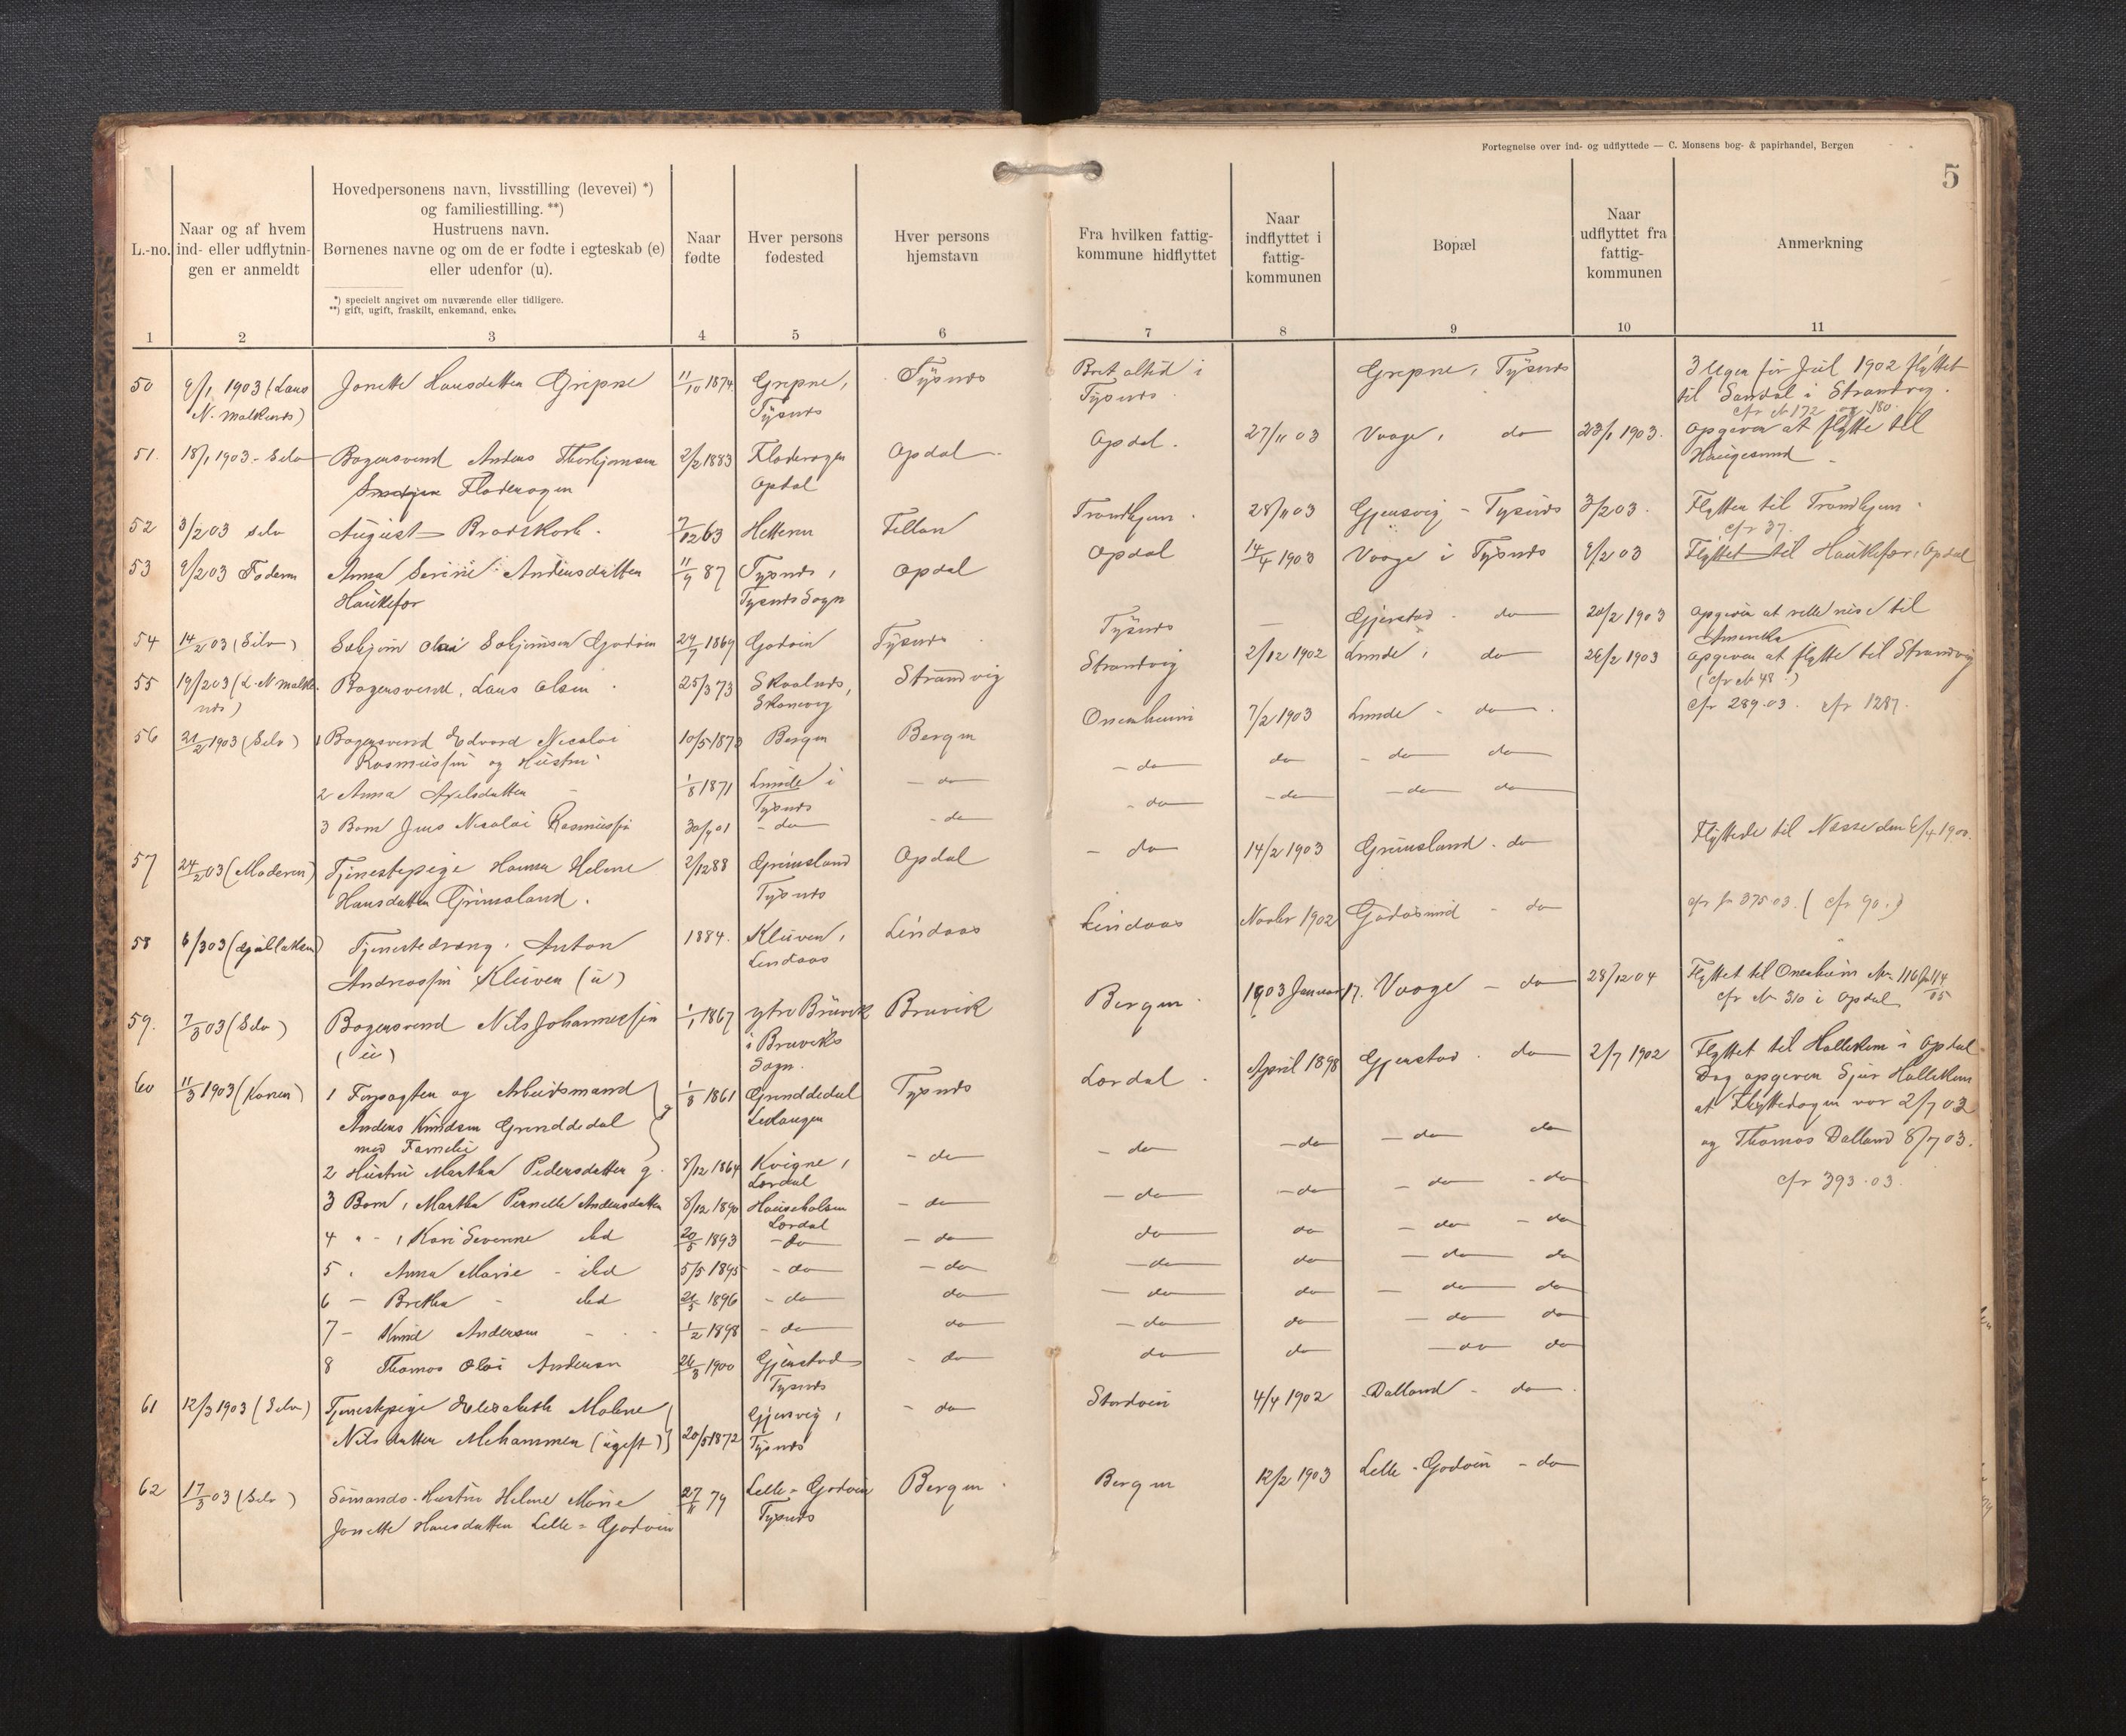 Fortegnelse over ind- og udflyttede — C. Monsens bog- & papirhandel, Bergen
5
L.-no.
Naar og af hvem
ind- eller udflytnin-
gen er anmeldt
Hovedpersonens navn, livsstilling (levevei) *)
og familiestilling. **)
Hustruens navn.
Børnenes navne og om de er fødte i egteskab (e)
eller udenfor (u).
*) specielt angivet om nuværende eller tidligere.
**) gift, ugift, fraskilt, enkemand, enke.
Naar
fødte
Hver persons
fødested
Hver persons
hjemstavn
Fra hvilken fattig-
kommune hidflyttet
Naar
indflyttet i
fattig-
kommunen
Bopæl
Naar
udflyttet fra
fattig-
kommunen
Anmerkning
1 2 3 4 5 6 7 8 9 10 11
50 9/1 1903 (Lars Jonette Hansdatter Gripne 11/10 1874 Gripne, Tysnes i Gripne, Tysnes 3 Uger før Jul 1902 flyttet
Tysnes Tysnes til Sandal i Strandvig.
cfr No 172 og 180.
51. 18/1 1903 - Selv Bagersvend Anders 2/2 1883 Opdal Opdal. 27/11 03 Vaage, do 23/1 1903. Opgiver at flytte til
Opdal Haugesund
52 3/2 03 selv August 7/12 63 Trondhjem. 28/11 03 Gjersvig - Tysnes 3/2 03. Flytter til Trondhjem.
cfr 37.
53 9/2 03 Faderen Anna Serine Andersdatter 11/9 87 Tysnes, Opdal Opdal 14/4 1903 Vaage i Tysnes 9/2 03 Flyttet til Opdal
Tysnes Sogn
54 14/2 03 (Selv) Godøen 29/7 1869 Godøen Tysnes Tysnes — Gjerstad do 20/2 1903 Opgiver at ville reise til
Amerika
55 19/2 03 Bagersvend, Lars Olsen 25/3 73 Strandvig Strandvig 2/12 1902 Lunde, do 26/2 1903 Opgiver at flytte til Strandvig
Skonevig (cfr No 48.)
56 21/2 1903 (Selv) 1 Bagersvend Edvard Nicolai 10/5 1873 Bergen Bergen Onenheim 7/2 1903 Lunde - do cfr 289.03. cfr 1287.
Rasmussen og Hustru
2 Anna Axelsdatter 1/8 1871 Lunde i do do do do do
Tysnes
3 Barn Jens Nicolai Rasmussen 30/9 01 do do do do do do
57 24/2 03 (Moderen) Tjenestepige Hanna Helene 2/12 88 Grimsland Opdal do 14/2 1903 Grimsland. do Flyttede til
Hansdatter Grimsland. Tysnes
58 6/3 03 Tjenestedreng, Anton 1884. Kleiven, Lindaas Lindaas Novbr 1902 Godøsund - do cfr 375.03. (cfr 90.)
Andreassen Kleiven (u) Lindaas
59. 7/3 03 (Selv) Bagersvend Nils Johannessen 1/1 1867 ytre Bruvik Bruvik Bergen 1903 Januar 17. Vaage - do 28/12 04 Flyttet til Onenheim
(u) i Bruviks cfr No 310 i Opdal
Sogn.
60 11/3 1903 (Konen) 1 Forpagter og Arbeidsmand 1/8 1861 Tysnes Lærdal April 1898 Gjerstad. do 2/7 1902 Flyttet til Hallekem i Opdal
Anders Knudsen Grenddedal Dog opgiver Sjur Hallekem
med Familie at Flyttedagen var 2/7 03
2 Hustru Martha Pedersdatter g. 8/12 1864 Kvigne, do do do do do og Thomas Dalland 8/7 03.
Lærdal
3 Barn, Martha Pernille Andersdatter 8/12 1890 do do do do do cfr 393.03.
Lærdal
4 Kari Severine do 20/5 1893 do do do do do do
5 Anna Marie 5/5 1895 do do do do do do
6 Bretha 1896 do do do do do do
7 Knud Andersen 1/2 1898 do do do do do do
8 Thomas Olai Andersen 26/3 1900 Gjerstad do do do do do
Tysnes
61 12/3 1903 (Selv) Tjenestepige Elisabeth Malene Gjersvig, do Stordøen 4/4 1902 Dalland - do
Nilsdatter Mehammer (ugift) 20/5 1872 Tysnes
62 17/3 03 (Selv) Sømands-Hustru Helene Marie 27/11 79 Lille-Godøen Bergen Bergen 12/2 1903 Lille-Godøen - do
Jonette Hansdatter Lille-Godøen Tysnes